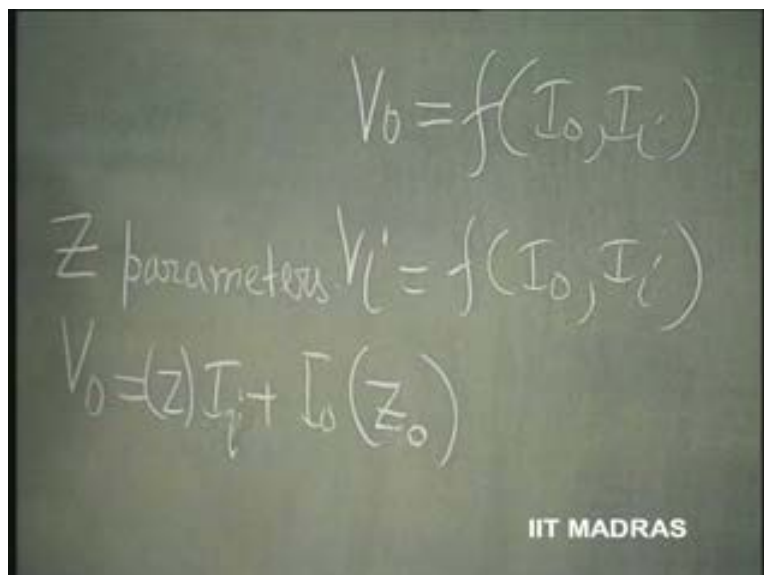 V₀ = f(I₀, Iᵢ)
Z parameters Vᵢ = f(I₀, Iᵢ)
V₀ = (Z) Iᵢ + I₀ (Z₀)
IIT MADRAS